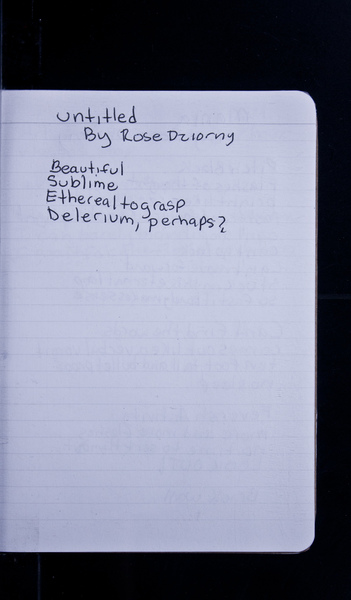 untitled
By Rose Dziorny
Beautiful
Sublime
Ethereal to grasp
Delerium, perhaps?